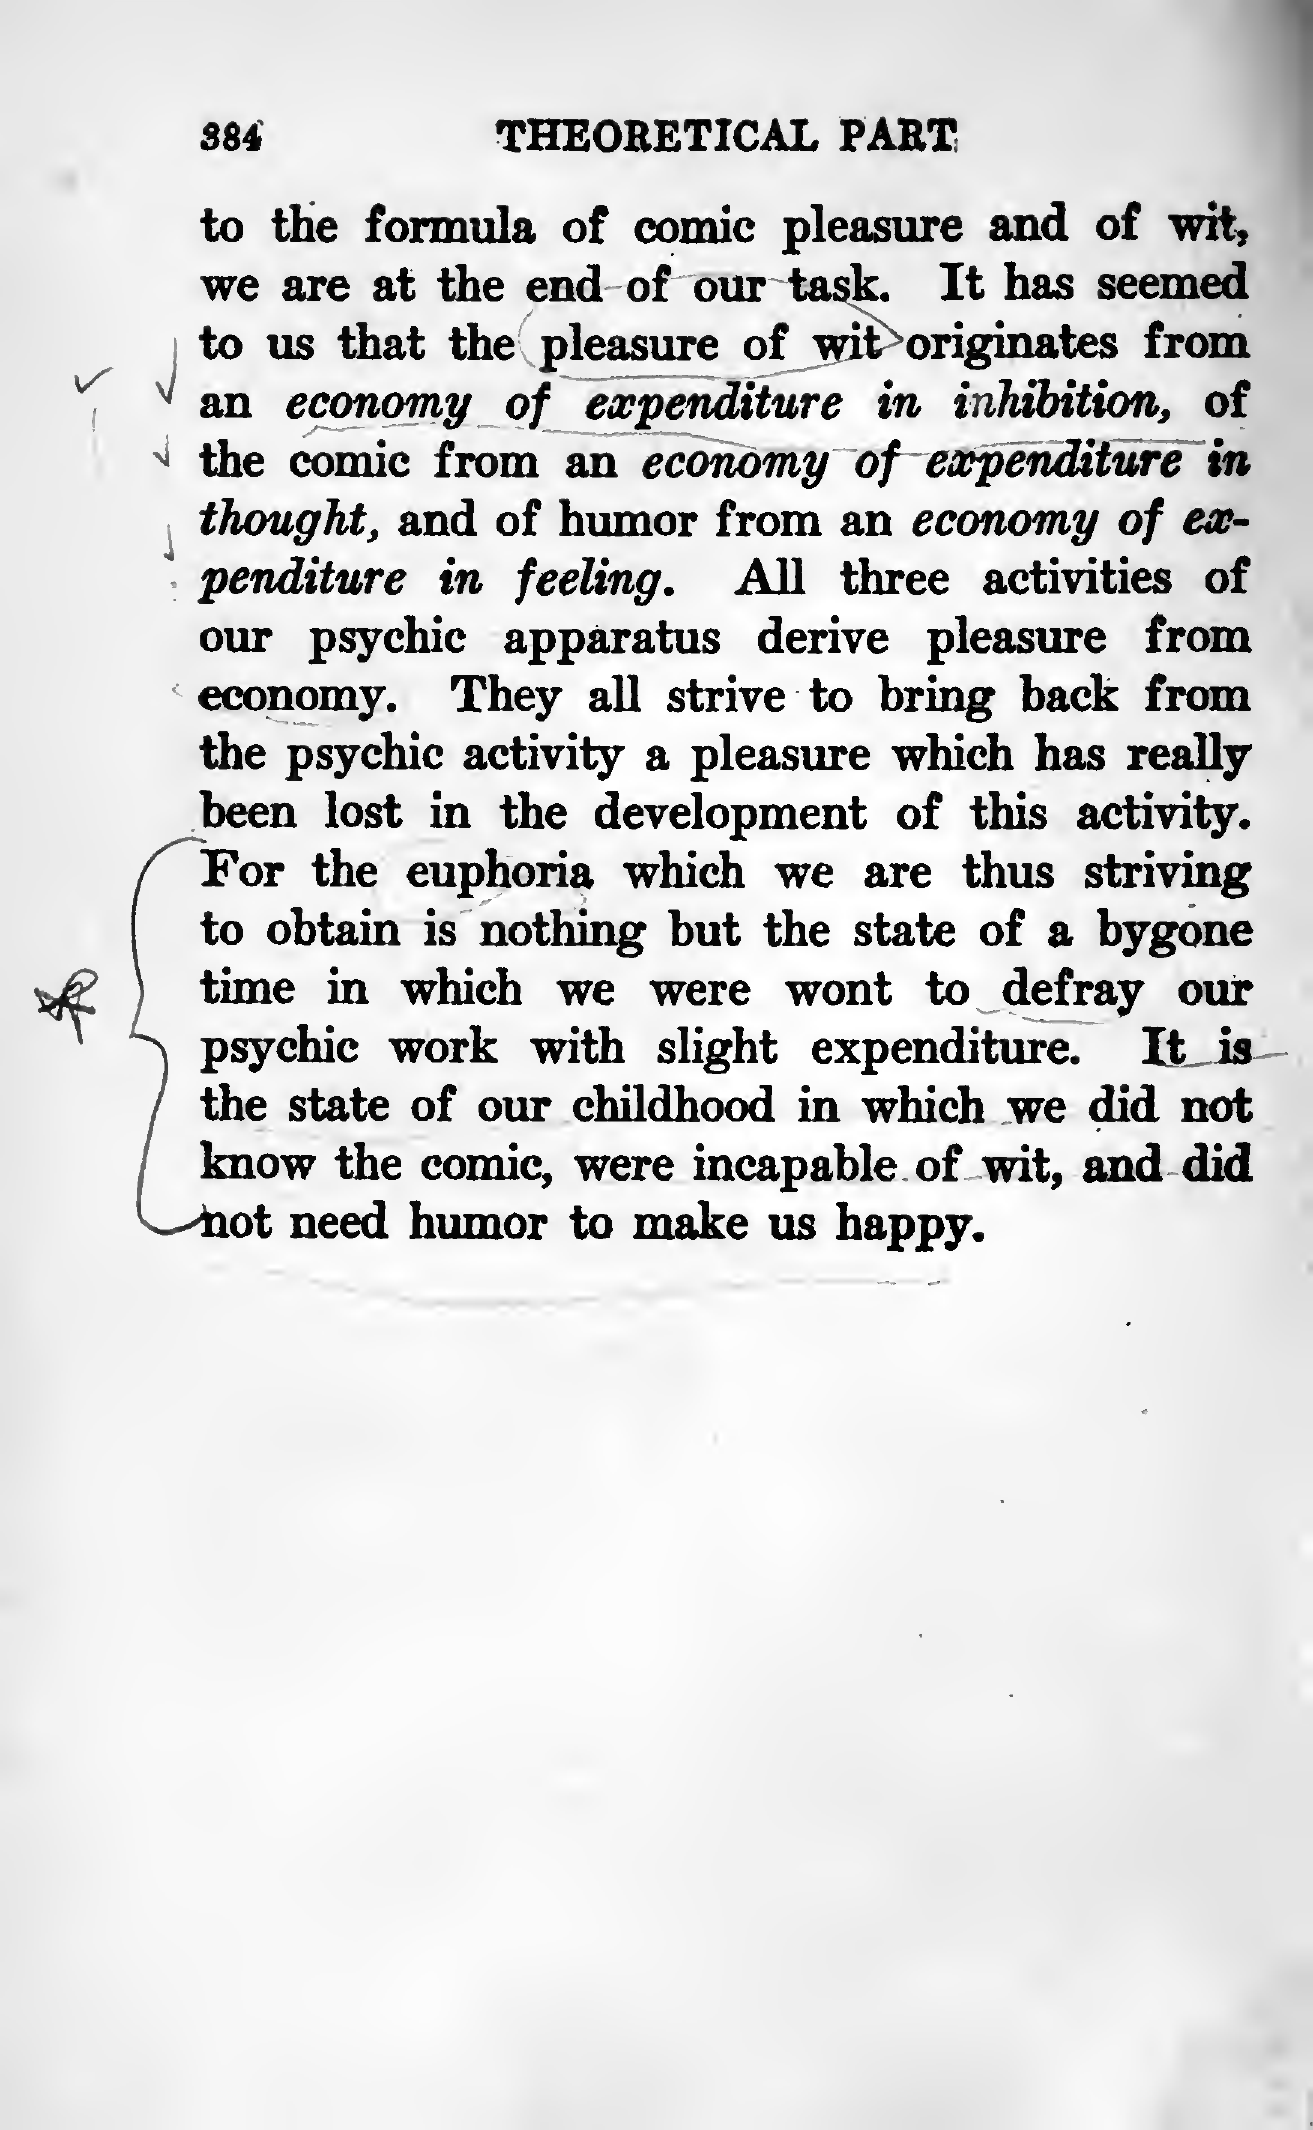 384 THEORETICAL PART
to the formula of comic pleasure and of wit,
we are at the end of our task. It has seemed
to us that the pleasure of wit originates from
an economy of expenditure in inhibition, of
the comic from an economy of expenditure in
thought, and of humor from an economy of ex-
penditure in feeling. All three activities of
our psychic apparatus derive pleasure from
economy. They all strive to bring back from
the psychic activity a pleasure which has really
been lost in the development of this activity.
For the euphoria which we are thus striving
to obtain is nothing but the state of a bygone
time in which we were wont to defray our
psychic work with slight expenditure. It is
the state of our childhood in which we did not
know the comic, were incapable of wit, and did
not need humor to make us happy.